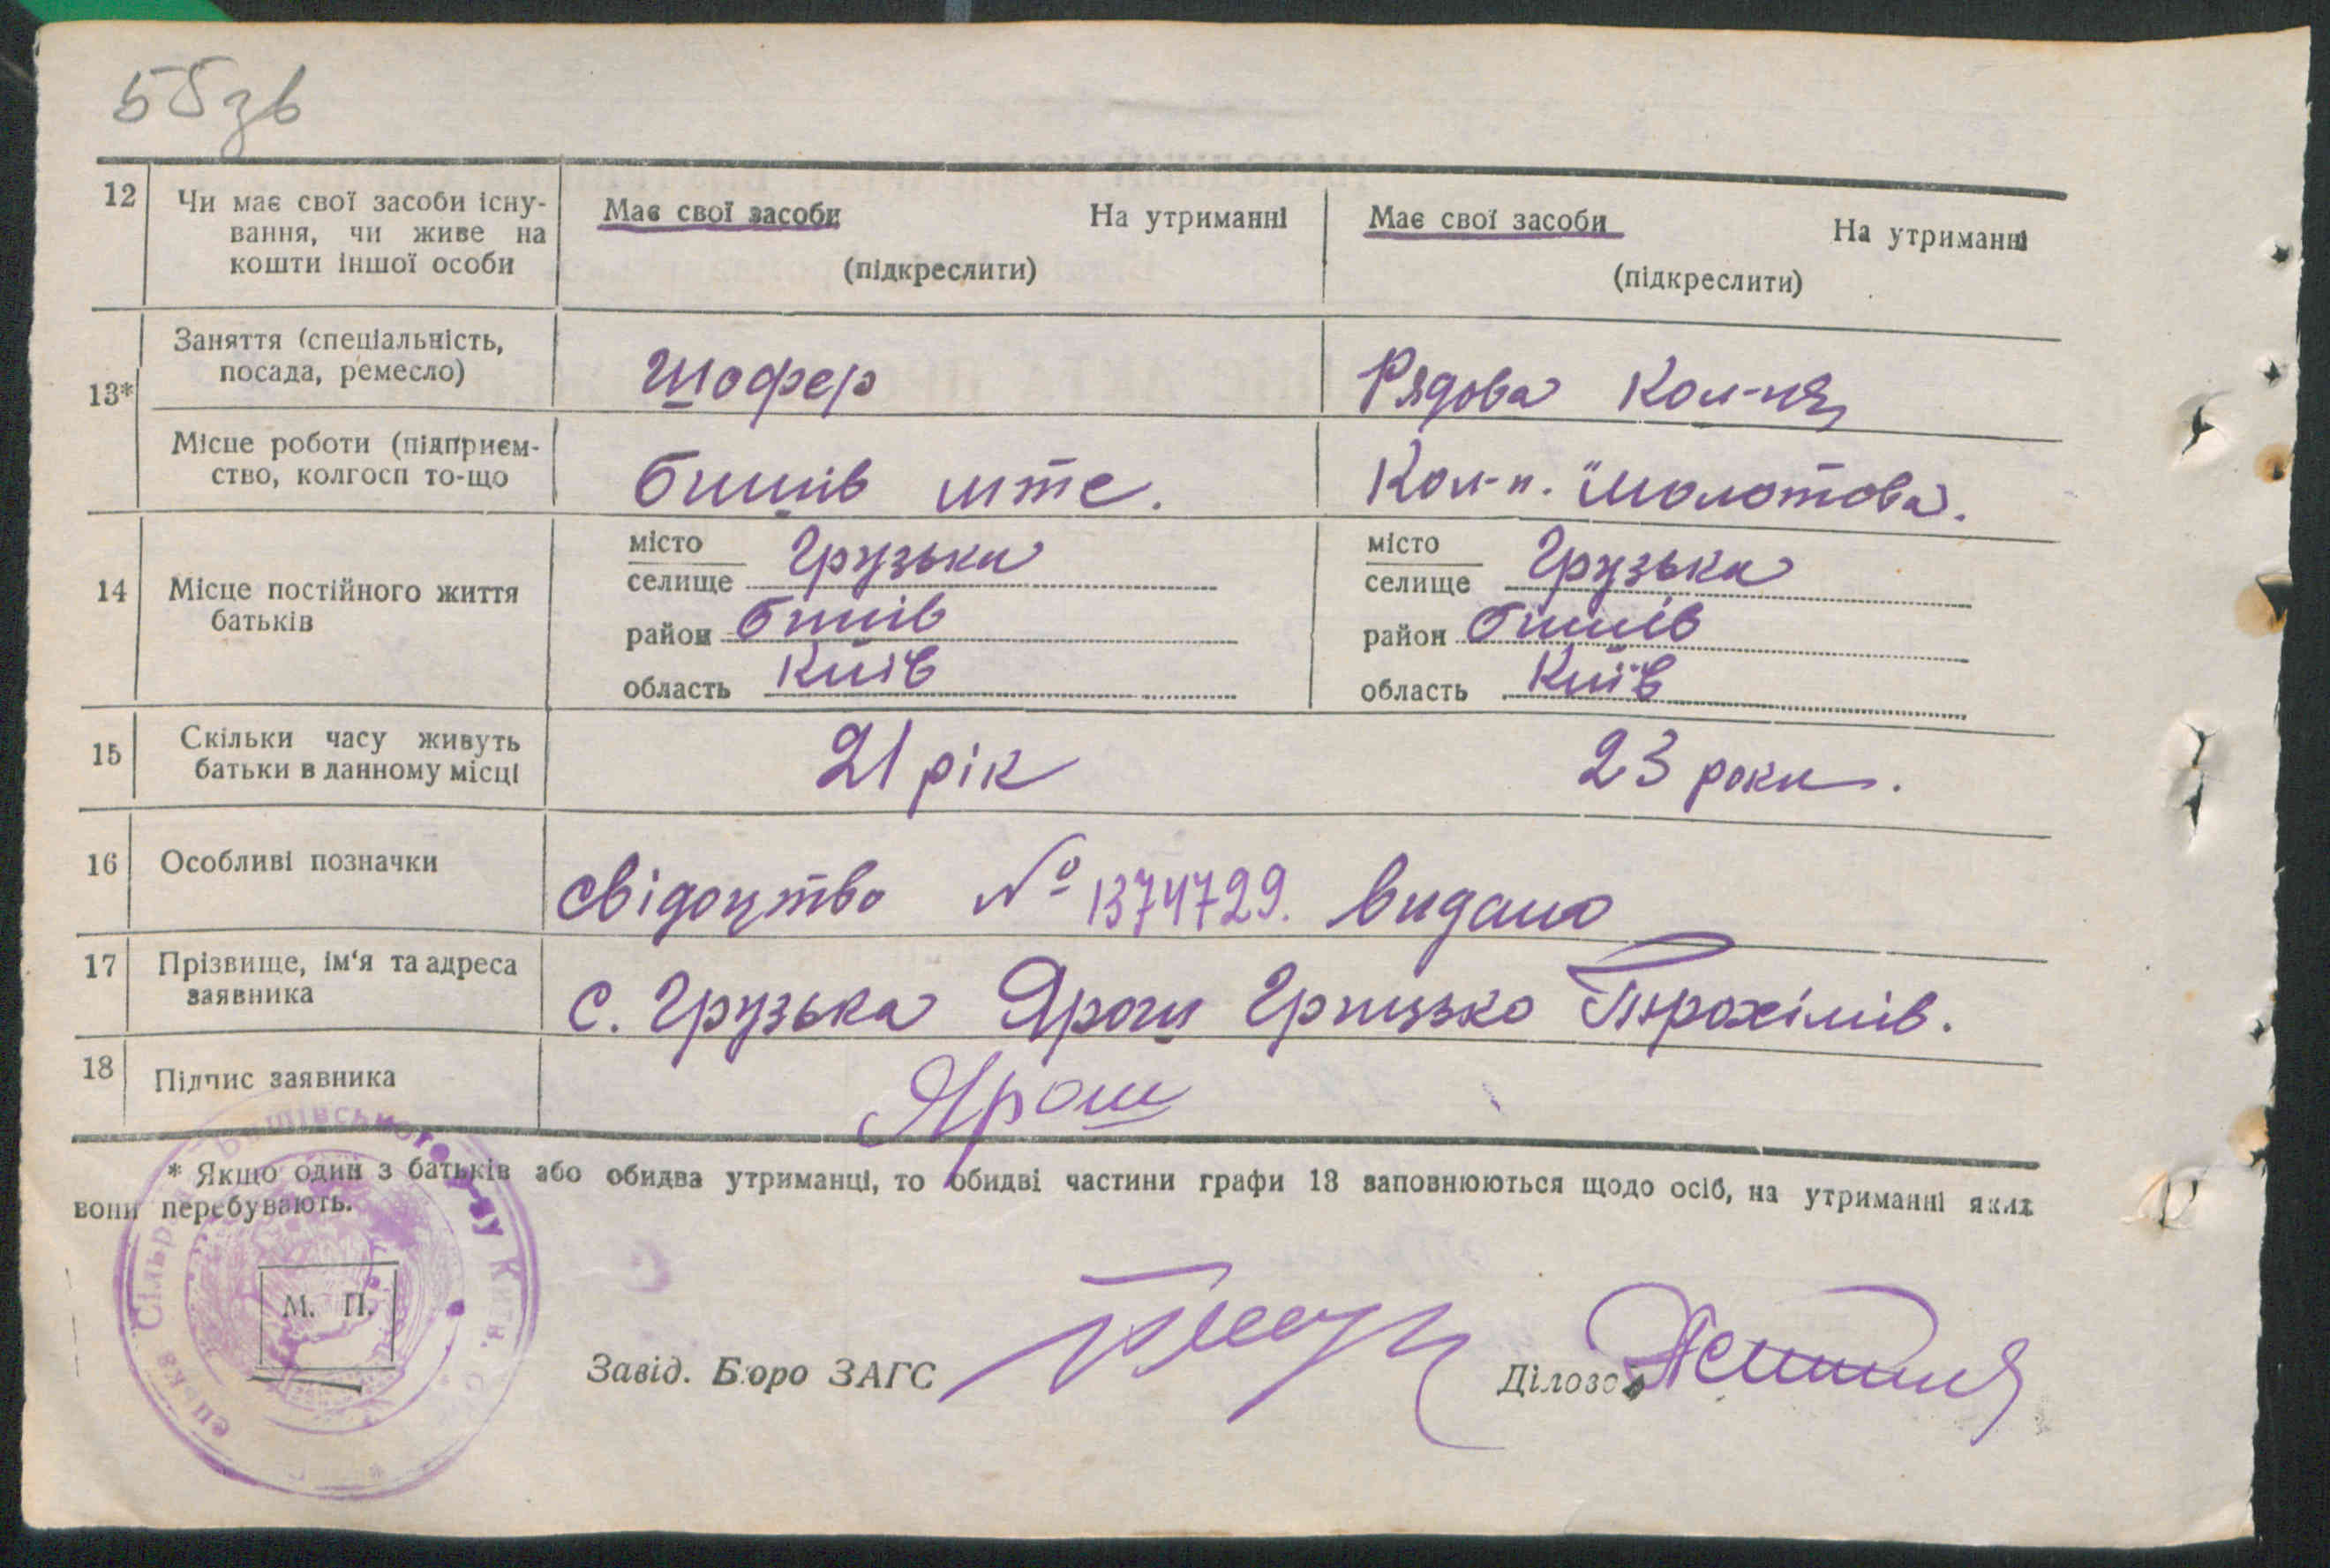 55зв
12 Чи має свої засоби існу-
вання, чи живе на
кошти іншої особи
Має свої засоби На утриманні
(підкреслити)
Має свої засоби На утриманні
(підкреслити)
13*
Заняття (спеціальність,
посада, ремесло)
Шофер
Рядова Кол-ця
Місце роботи (підприєм-
ство, колгосп то-що
бишів мтс.
Кол-п. "Молотова.
14 Місце постійного життя
батьків
місто
селище Грузька
район бишів
область Київ
місто
селище Грузька
район бишів
область Київ
15 Скільки часу живуть
батьки в данному місці
21 рік
23 роки.
16 Особливі позначки
свідоцтво № 1374729. видано
17 Прізвище, ім'я та адреса
заявника
с. Грузька Ярош Грицько Трохімів.
18 Підпис заявника
Ярош
* Якщо один з батьків або обидва утриманці, то обидві частини графи 13 заповнюються щодо осіб, на утриманні яких
вони перебувають.
М. П.
Завід. Бюро ЗАГС
Ділово